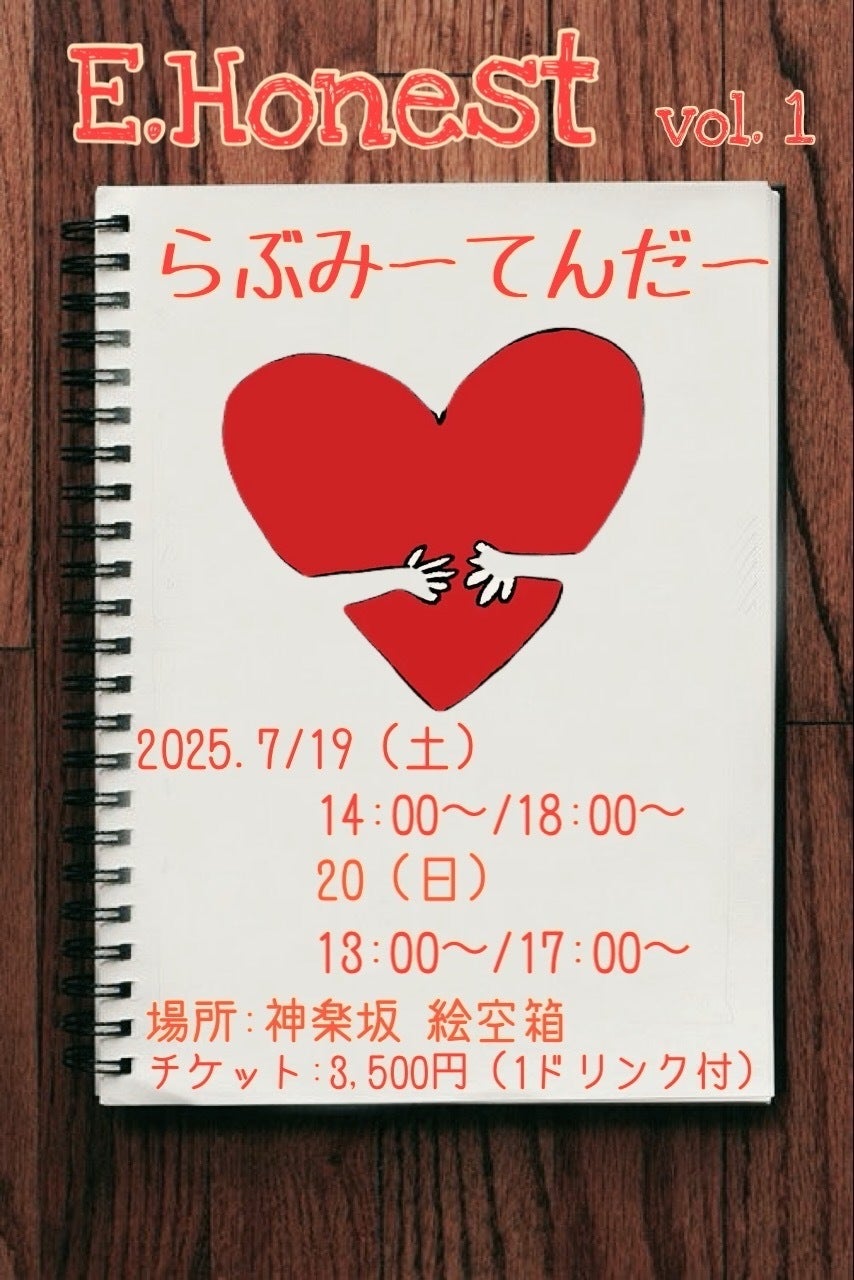 E.Honest vol. 1
らぶみーてんだー
2025.7/19（土）
14:00～/18:00～
20（日）
13:00～/17:00～
場所:神楽坂 絵空箱
チケット:3,500円（1ドリンク付）